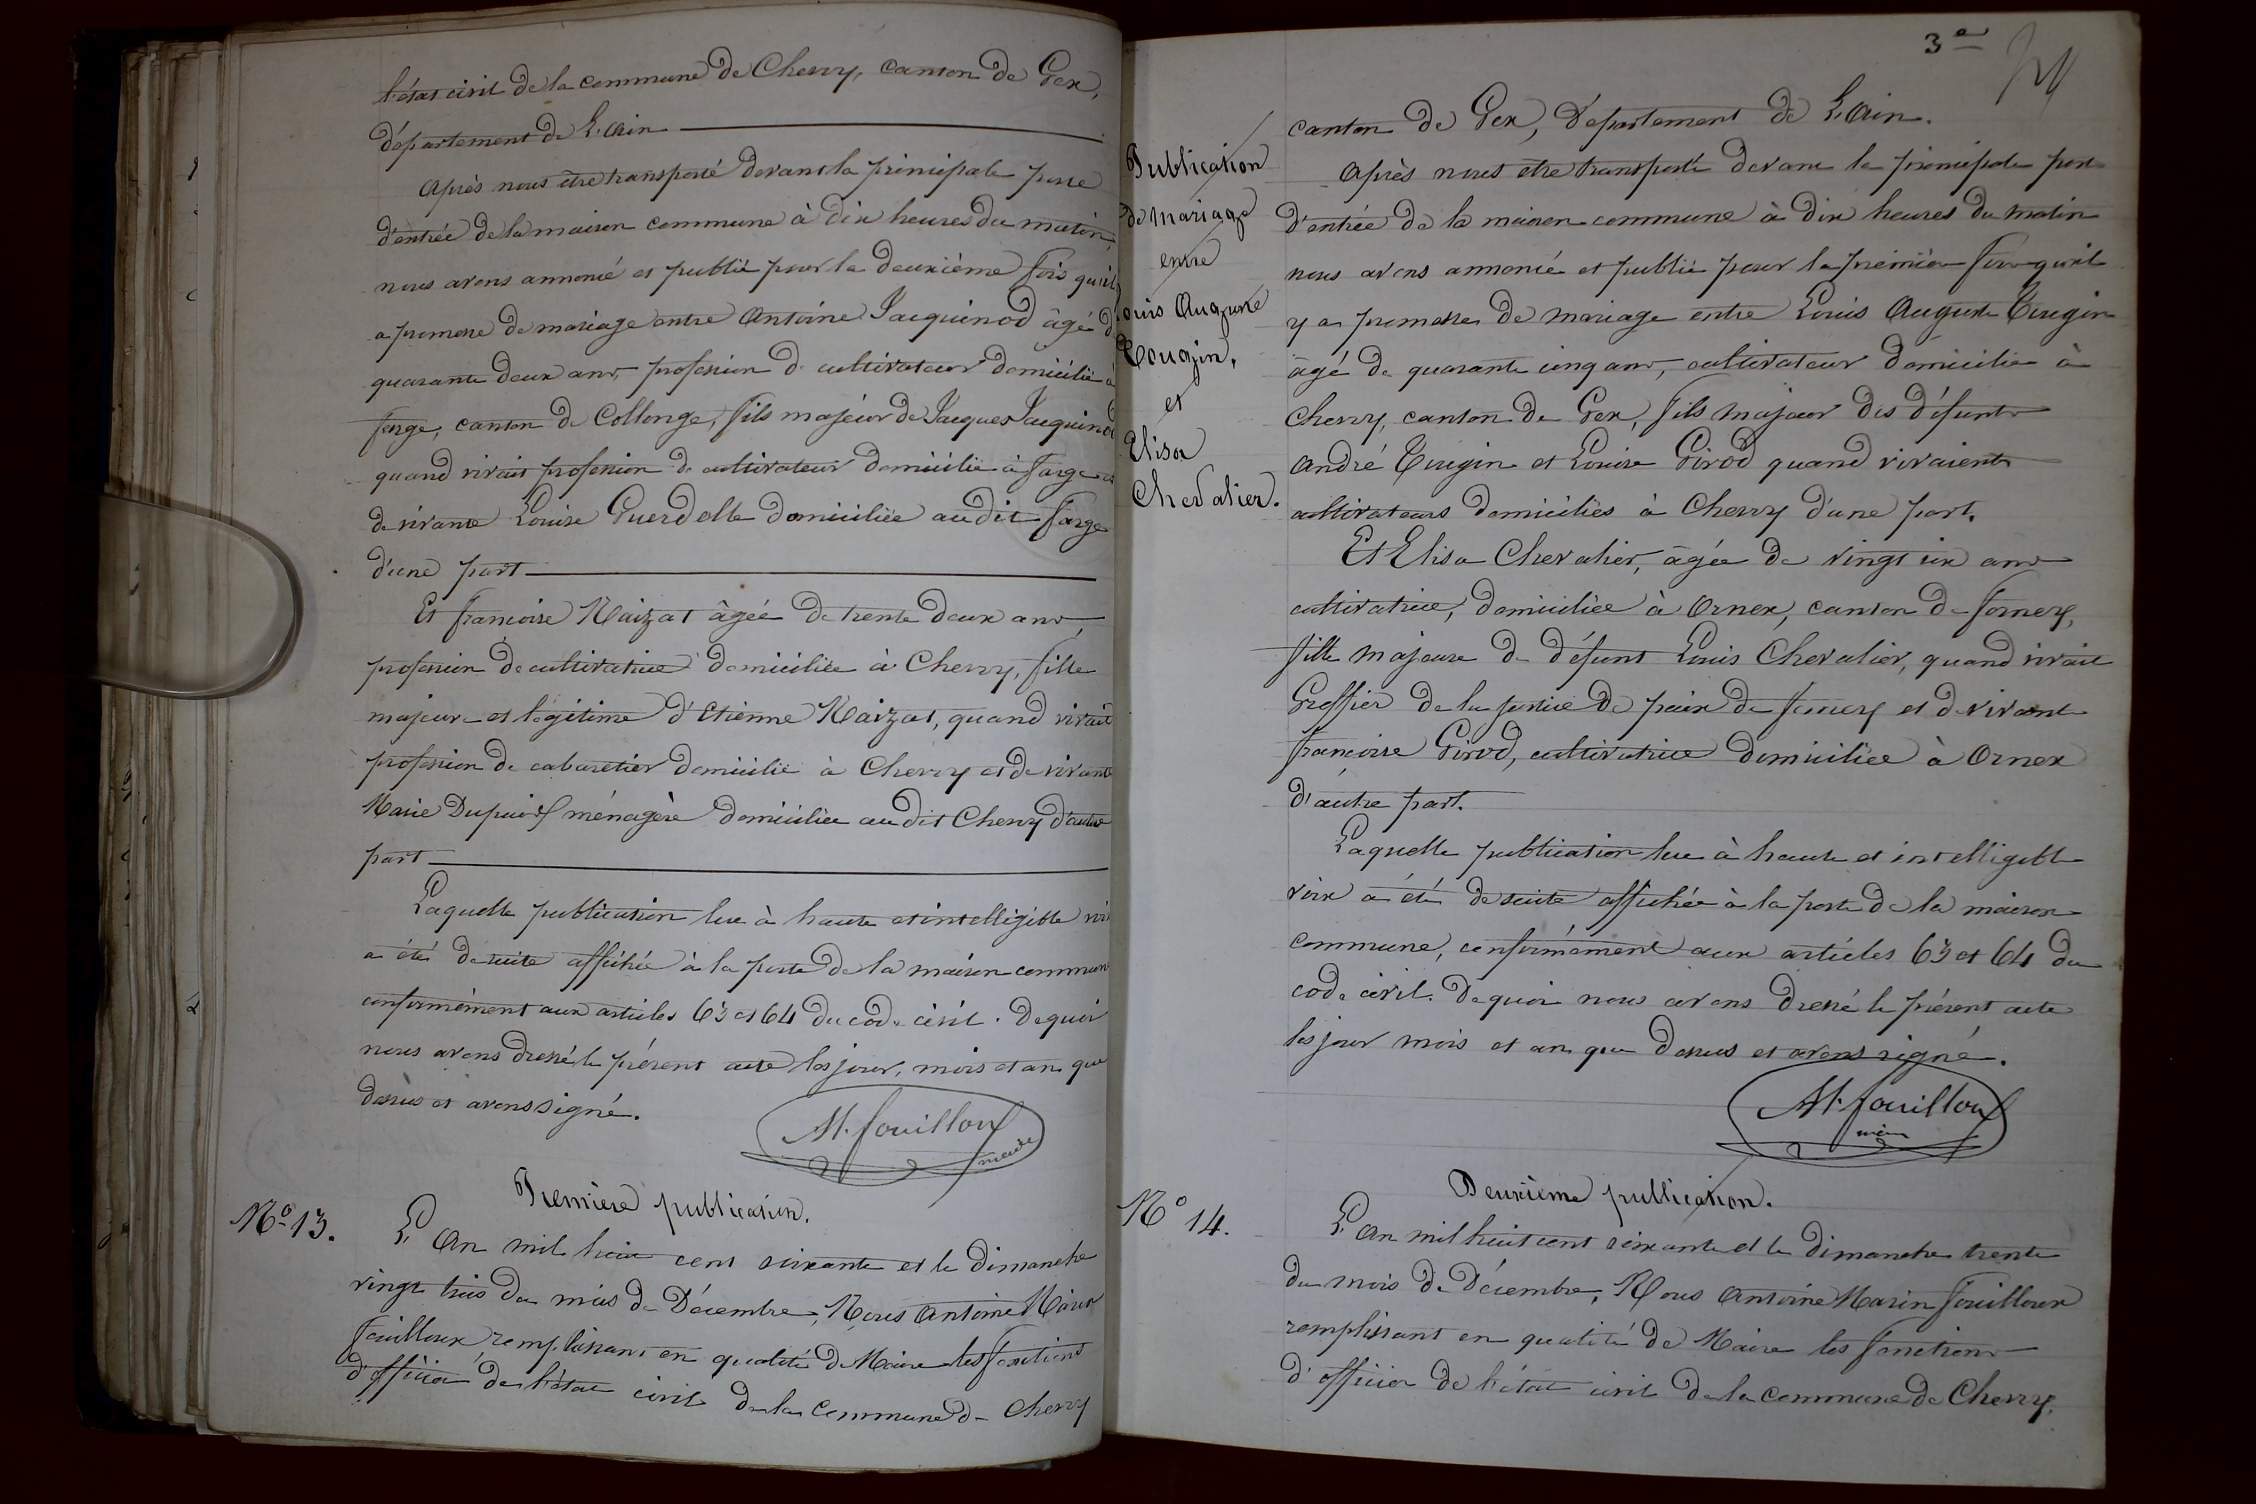 l'état civil de la commune de Chevry, canton de Gex,
département de L'Ain
Après nous être transporté devant la principale porte
d'entrée de la maison commune à dix heures du matin,
nous avons annoncé et publié pour la deuxième fois qu'il y
a promesse de mariage entre Antoine Jacquinod âgé d
quarante deux ans, profession de cultivateur domicilié à
farge, canton de Collonge, fils majeur de Jacques Jacquinod
quand vivait profession de cultivateur domicilié à farge et
de vivante Louise Guerdelle domiciliée au dit farge
d'une part
Et françoise Maizat âgée de trente deux ans,
profession de cultivatrice domiciliée à Chevry, fille
majeure et légitime d'Etienne Maizat, quand vivait
profession de cabaretier domicilié à Chevry et de vivante
Marie Dupuis ménagère domiciliée au dit Chevry d'autre
part
Laquelle publication lue à haute et intelligible
a été de suite affichée à la porte de la maison commune
conformément aux articles 63 et 64 du code civil. De quoi
nous avons dressé le présent acte les jour, mois et an que
dessus et avons signé.
M. fouilloux
maire
Première publication.
No 13.
L'An mil huit cent soixante et le dimanche
vingt trois du mois de Décembre, Nous Antoine Marin
fouilloux, remplissant en qualité de Maire les fonctions
d'officier de l'état civil de la Commune de Chevry
3e
canton de Gex, Département de L'Ain.
Publication
de mariage
entre
Louis Auguste
Tougin,
et
Elisa
Chevalier.
Après nous etre transporté devant la principale porte
d'entrée de la maison commune à dix heures du matin
nous avons annoncé et publié pour la première fois qu'il
y a promesse de mariage entre Louis Auguste Tougin
âgé de quarante cinq ans, cultivateur domicilié à
Chevry, canton de Gex, fils majeur des défunts
André Tougin et Louise Girod quand vivaient
cultivateurs domiciliés à Chevry d'une part.
Et Elisa Chevalier, âgée de vingt six ans
cultivatrice, domiciliée à Ornex, canton de ferney,
fille majeure de défunt Louis Chevalier, quand vivait
Greffier de la justice de paix de ferney et de vivante
françoise Girod, cultivatrice domiciliée à Ornex
d'autre part.
Laquelle publication lue à haute et intelligible
voix a été de suite affichée à la porte de la maison
commune, conformément aux articles 63 et 64 du
code civil. De quoi nous avons dressé le présent acte
les jour mois et an que dessus et avons signé.
M. fouilloux
maire
Deuxième publication.
No 14.
L'An mil huit cent soixante et le dimanche trente
du mois de Décembre, Nous Antoine Marin fouilloux
remplissant en qualité de Maire les fonctions
d'officier de l'état civil de la commune de Chevry,